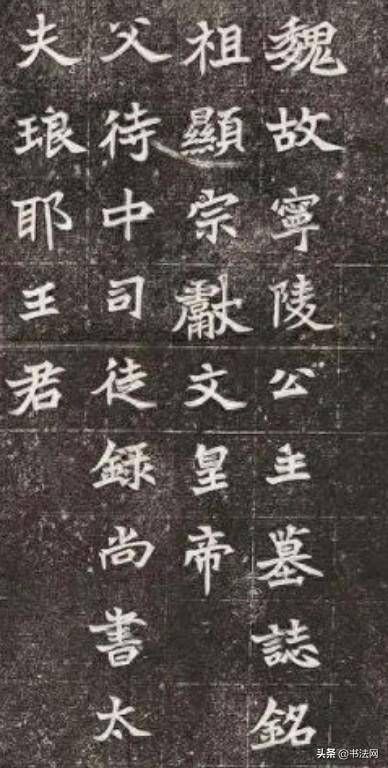 魏故寧陵公主墓誌銘
祖顯宗獻文皇帝
父待中司徒録尚書太
夫琅耶王君
头条 @书法网